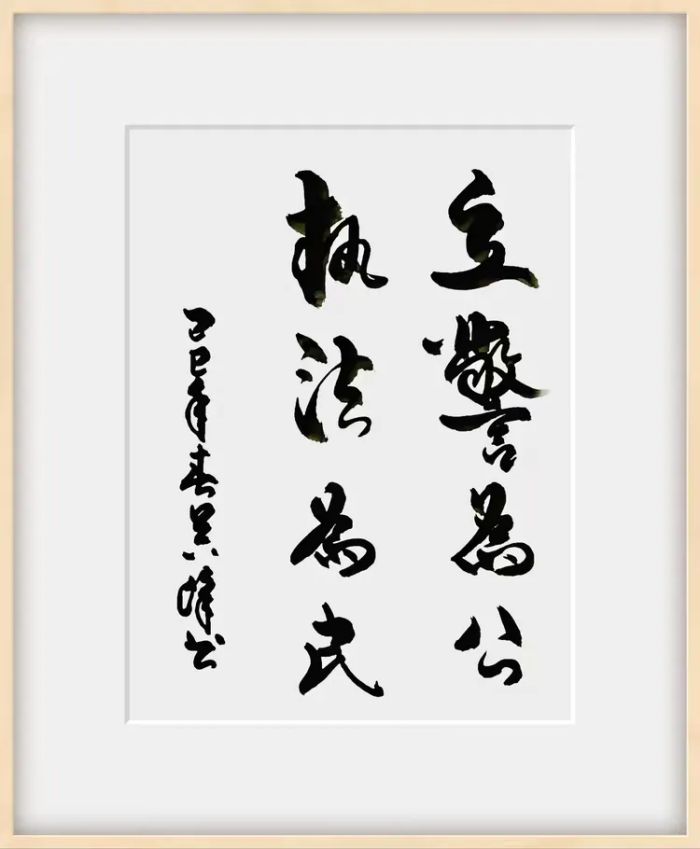 立警為公
执法為民
己巳年春吴峰书